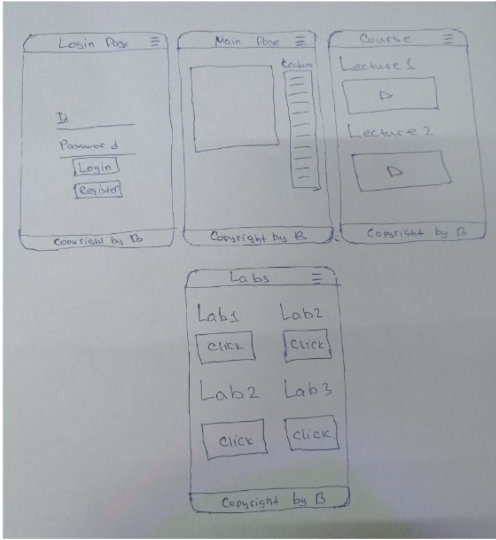 Login Page
Id
Password
Login
Register
Copyright by B
Main Page
Lecture
Copyright by B
Course
Lecture 1
Lecture 2
Copyright by B
Labs
Lab1 Lab2
Click Click
Lab2 Lab3
Click Click
Copyright by B